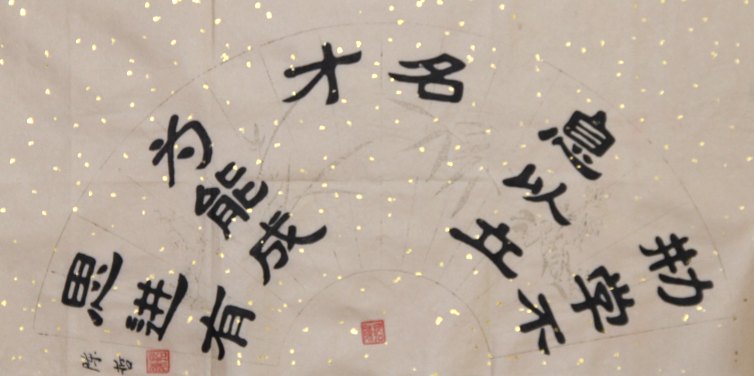 勤学不
息以立
名
思进有
方能成
才
陈哲